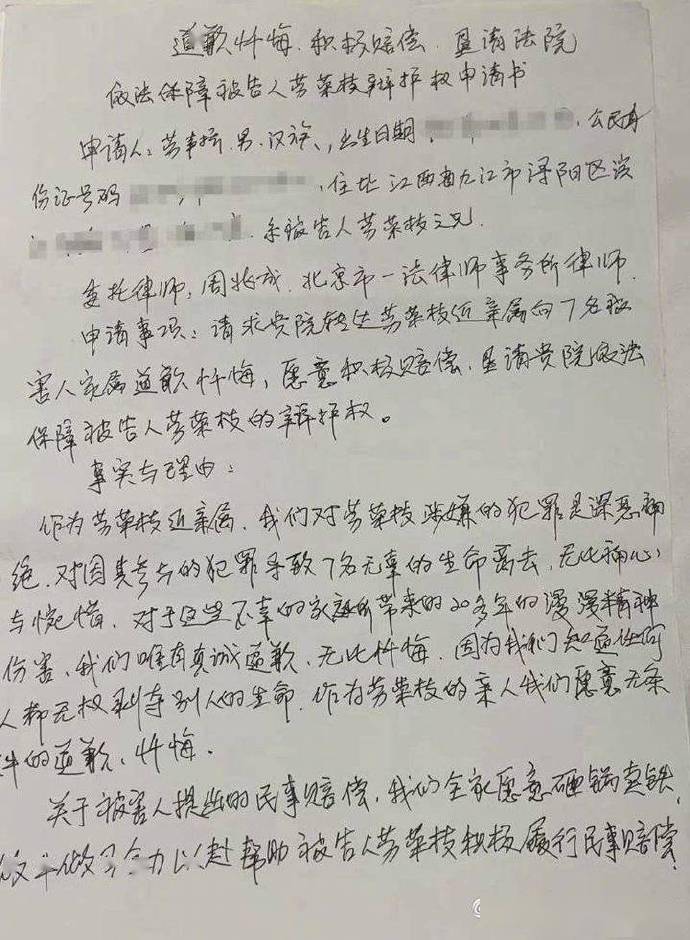 道歉忏悔、积极赔偿、恳请法院
依法保障被告人劳荣枝辩护权申请书
申请人：劳事桥，男，汉族，出生日期，公民身
份证号码，住址江西省九江市浔阳区滨
系被告人劳荣枝之兄。
委托律师：周兆成，北京市一法律师事务所律师。
申请事项：请求贵院转达劳荣枝近亲属向7名被
害人家属道歉忏悔，愿意积极赔偿，恳请贵院依法
保障被告人劳荣枝的辩护权。
事实与理由：
作为劳荣枝近亲属，我们对劳荣枝涉嫌的犯罪是深恶痛
绝，对因其参与的犯罪导致7名无辜的生命离去，无比痛心
与惋惜，对于这些不幸的家庭所带来的20多年的漫漫精神
伤害，我们唯有真诚道歉、无比忏悔。因为我们知道任何
人都无权剥夺别人的生命，作为劳荣枝的亲人我们愿意无条
件的道歉、忏悔。
关于被害人提出的民事赔偿，我们全家愿意砸锅卖铁，
全力以赴帮助被告人劳荣枝积极履行民事赔偿